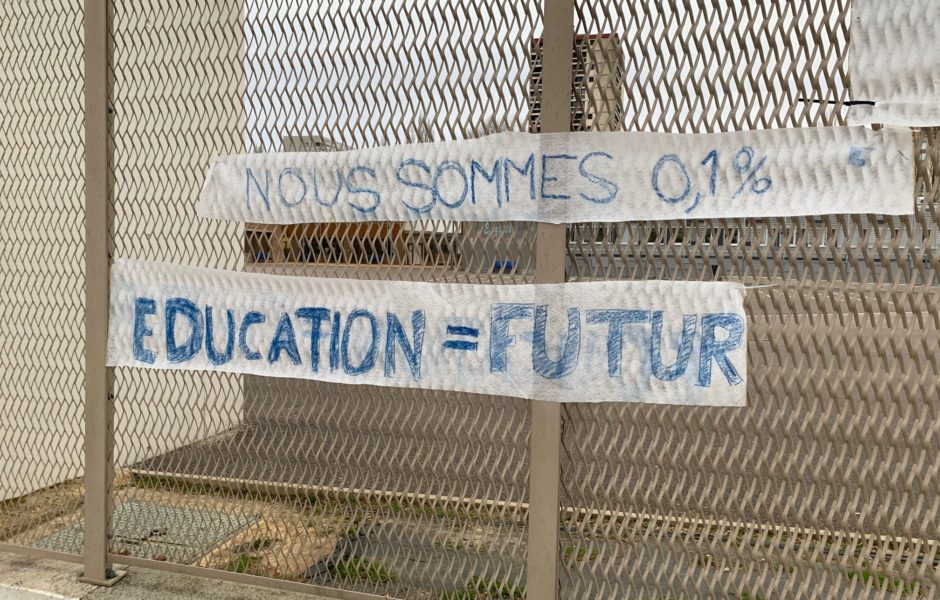 NOUS SOMMES 0,1%
EDUCATION = FUTUR